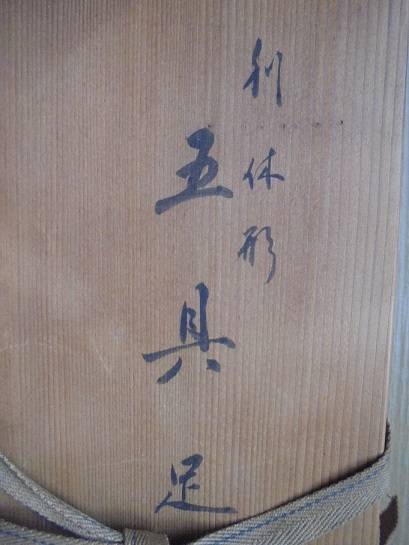 利休形
五具足